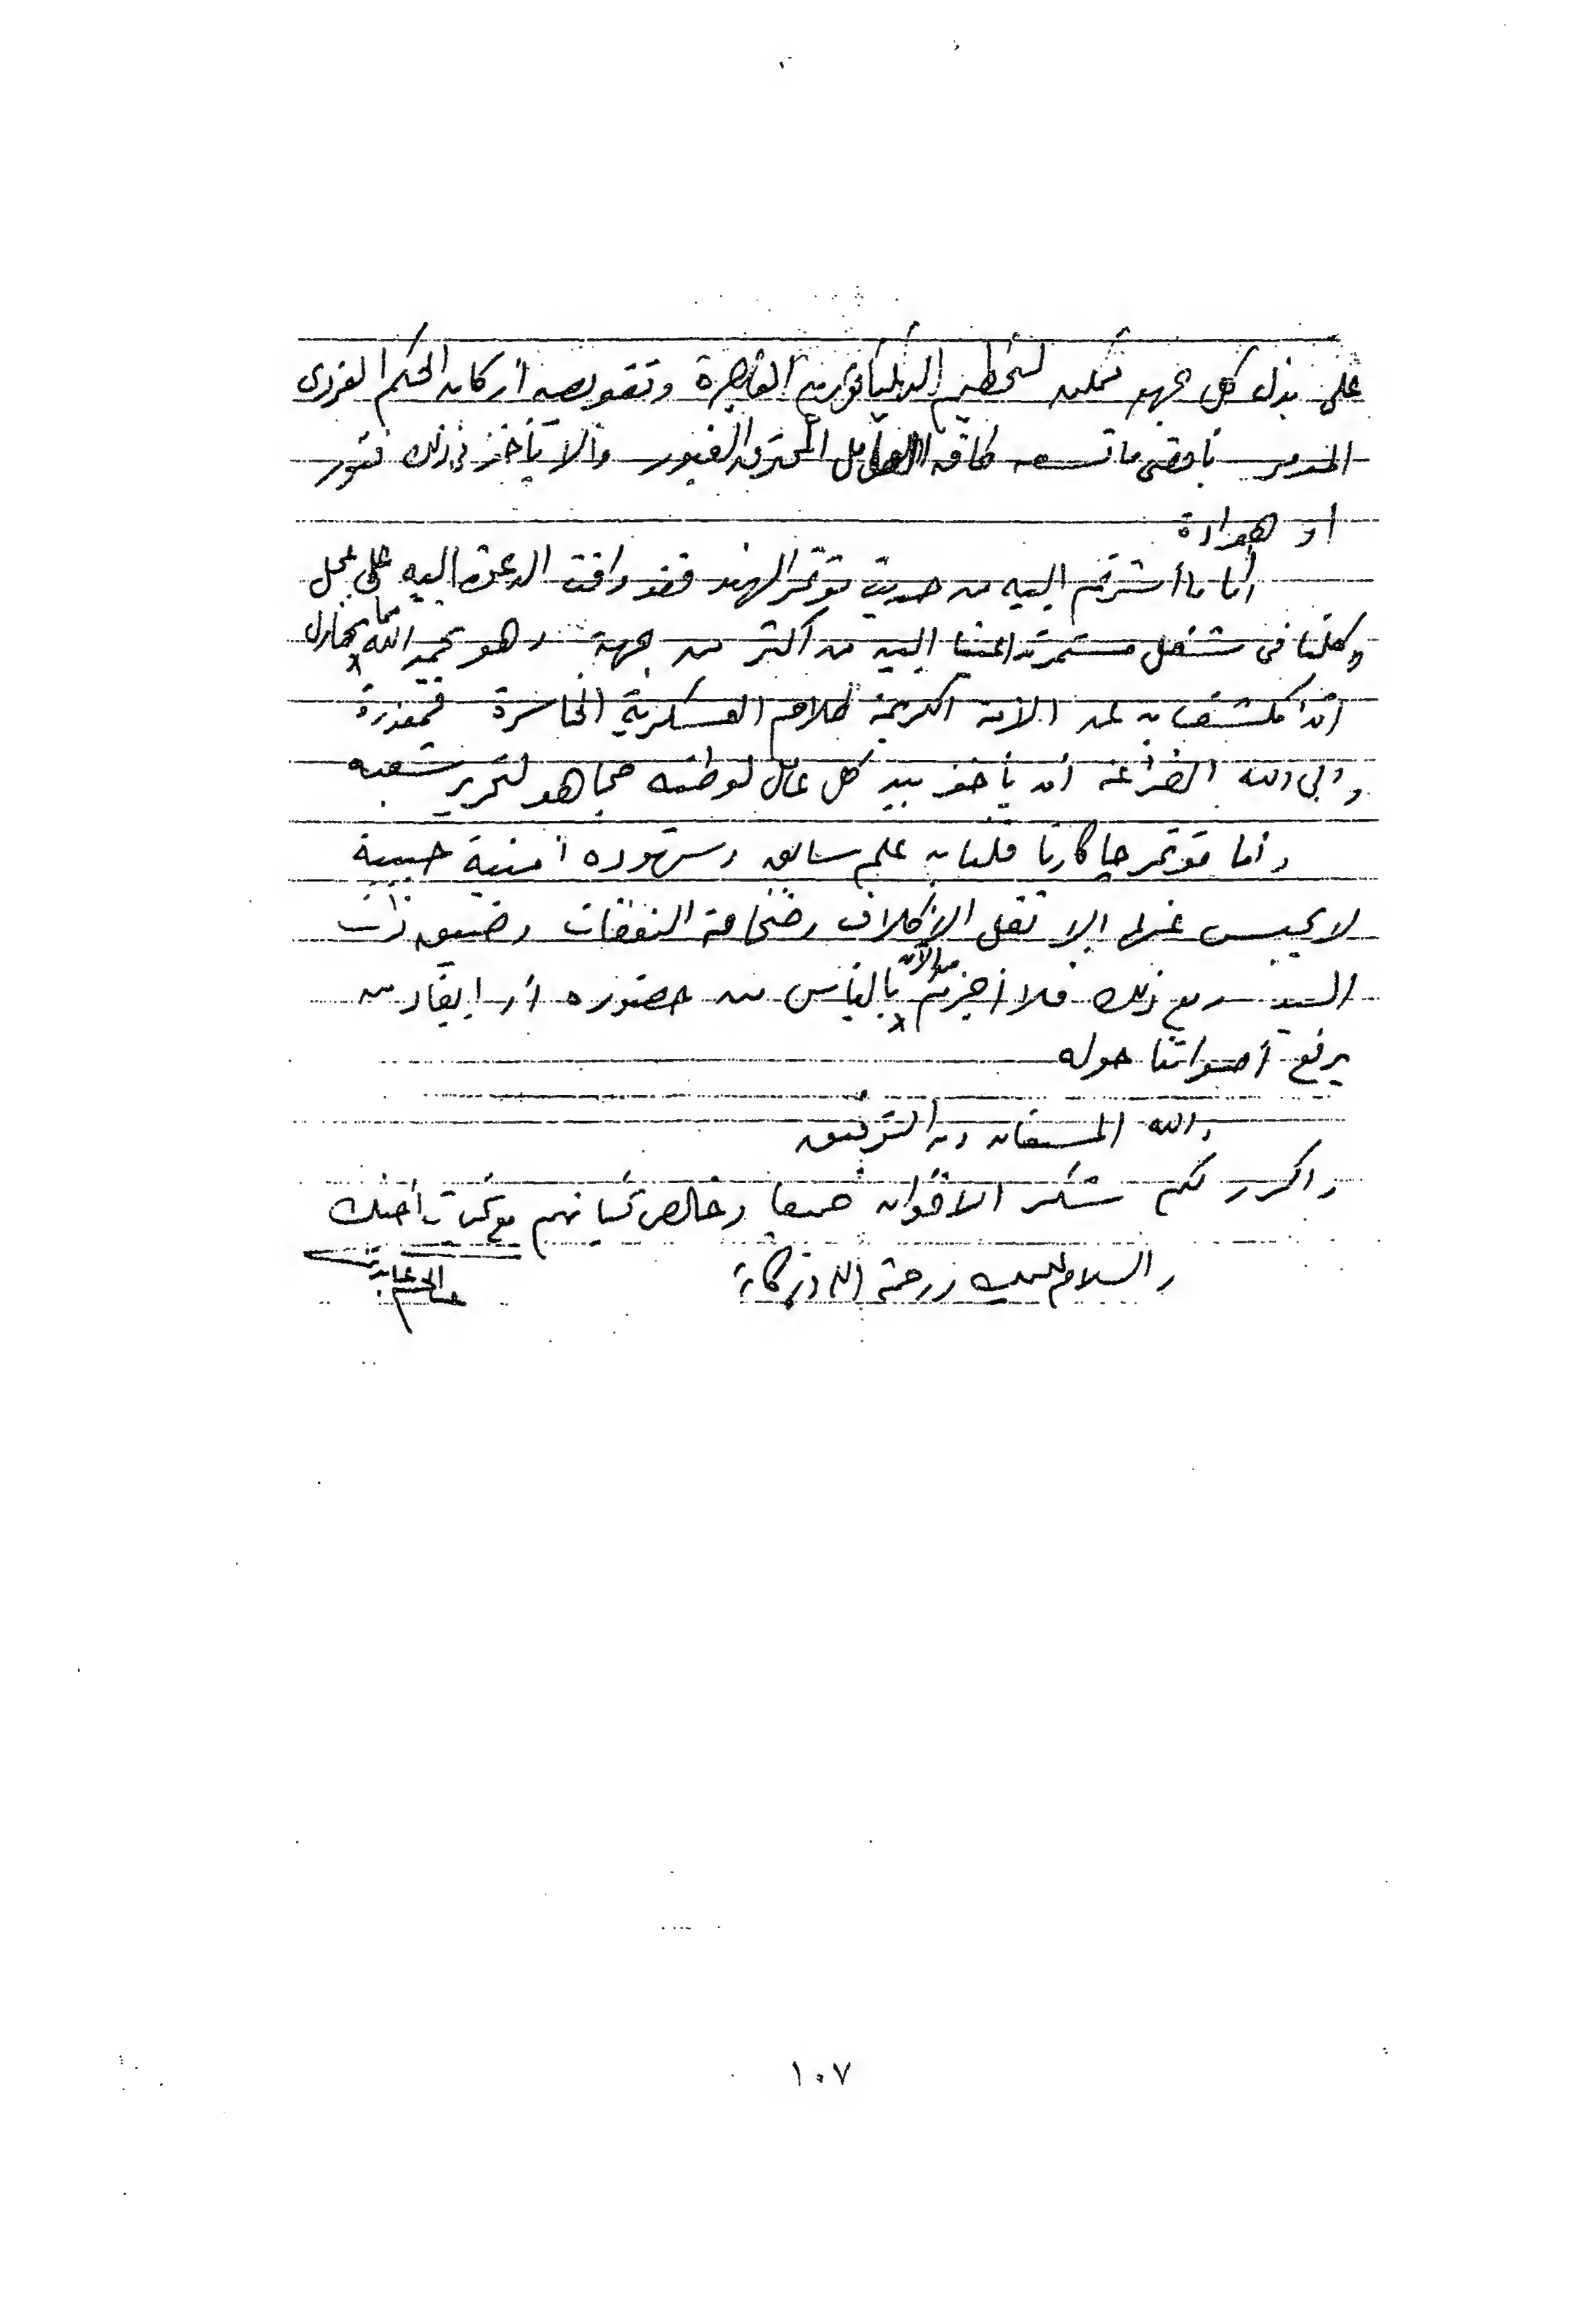 على بذل كل جهد ممكن لتحطيم الديكتاتورية القاهرة وتقويض أركان الحكم الفردى
المدمر بأقصى ما تسعه طاقة العامل المحترق الغيور وألا يأخذ فى ذلك فتور
او هوادة
أما ما أشرتم إليه من حديث مؤتمر الهند فقد وافت الدعوة إليه على عجل
وكلنا فى شغل مستمر إليه من أكثر من جهة وهو بحمد الله مما يحاول
أن يكشف به عن الامة الكريمة ظلام العسكرية الخاسرة فمعذرة
وإلى الله الضراعة أن يأخذ بيد كل عامل لوطنه مجاهد لتحرير شعبه
وأما مؤتمر جاكارتا فلنا به علم سابق وشهوده أمنية حبيبة
لا يحبس عنها إلا ثقل الاكلاف وضخامة النفقات وضيق ذات
اليد ومع ذلك فلا أجزم من الآن باليأس من حضوره أو إيفاد من
يرفع أصواتنا حوله
والله المستعان وبه التوفيق
واكرر لكم شكر الاخوان جميعا وخالص تحياتهم مع تحيات أخيك
والسلام عليك ورحمة الله وبركاته
١٠٧